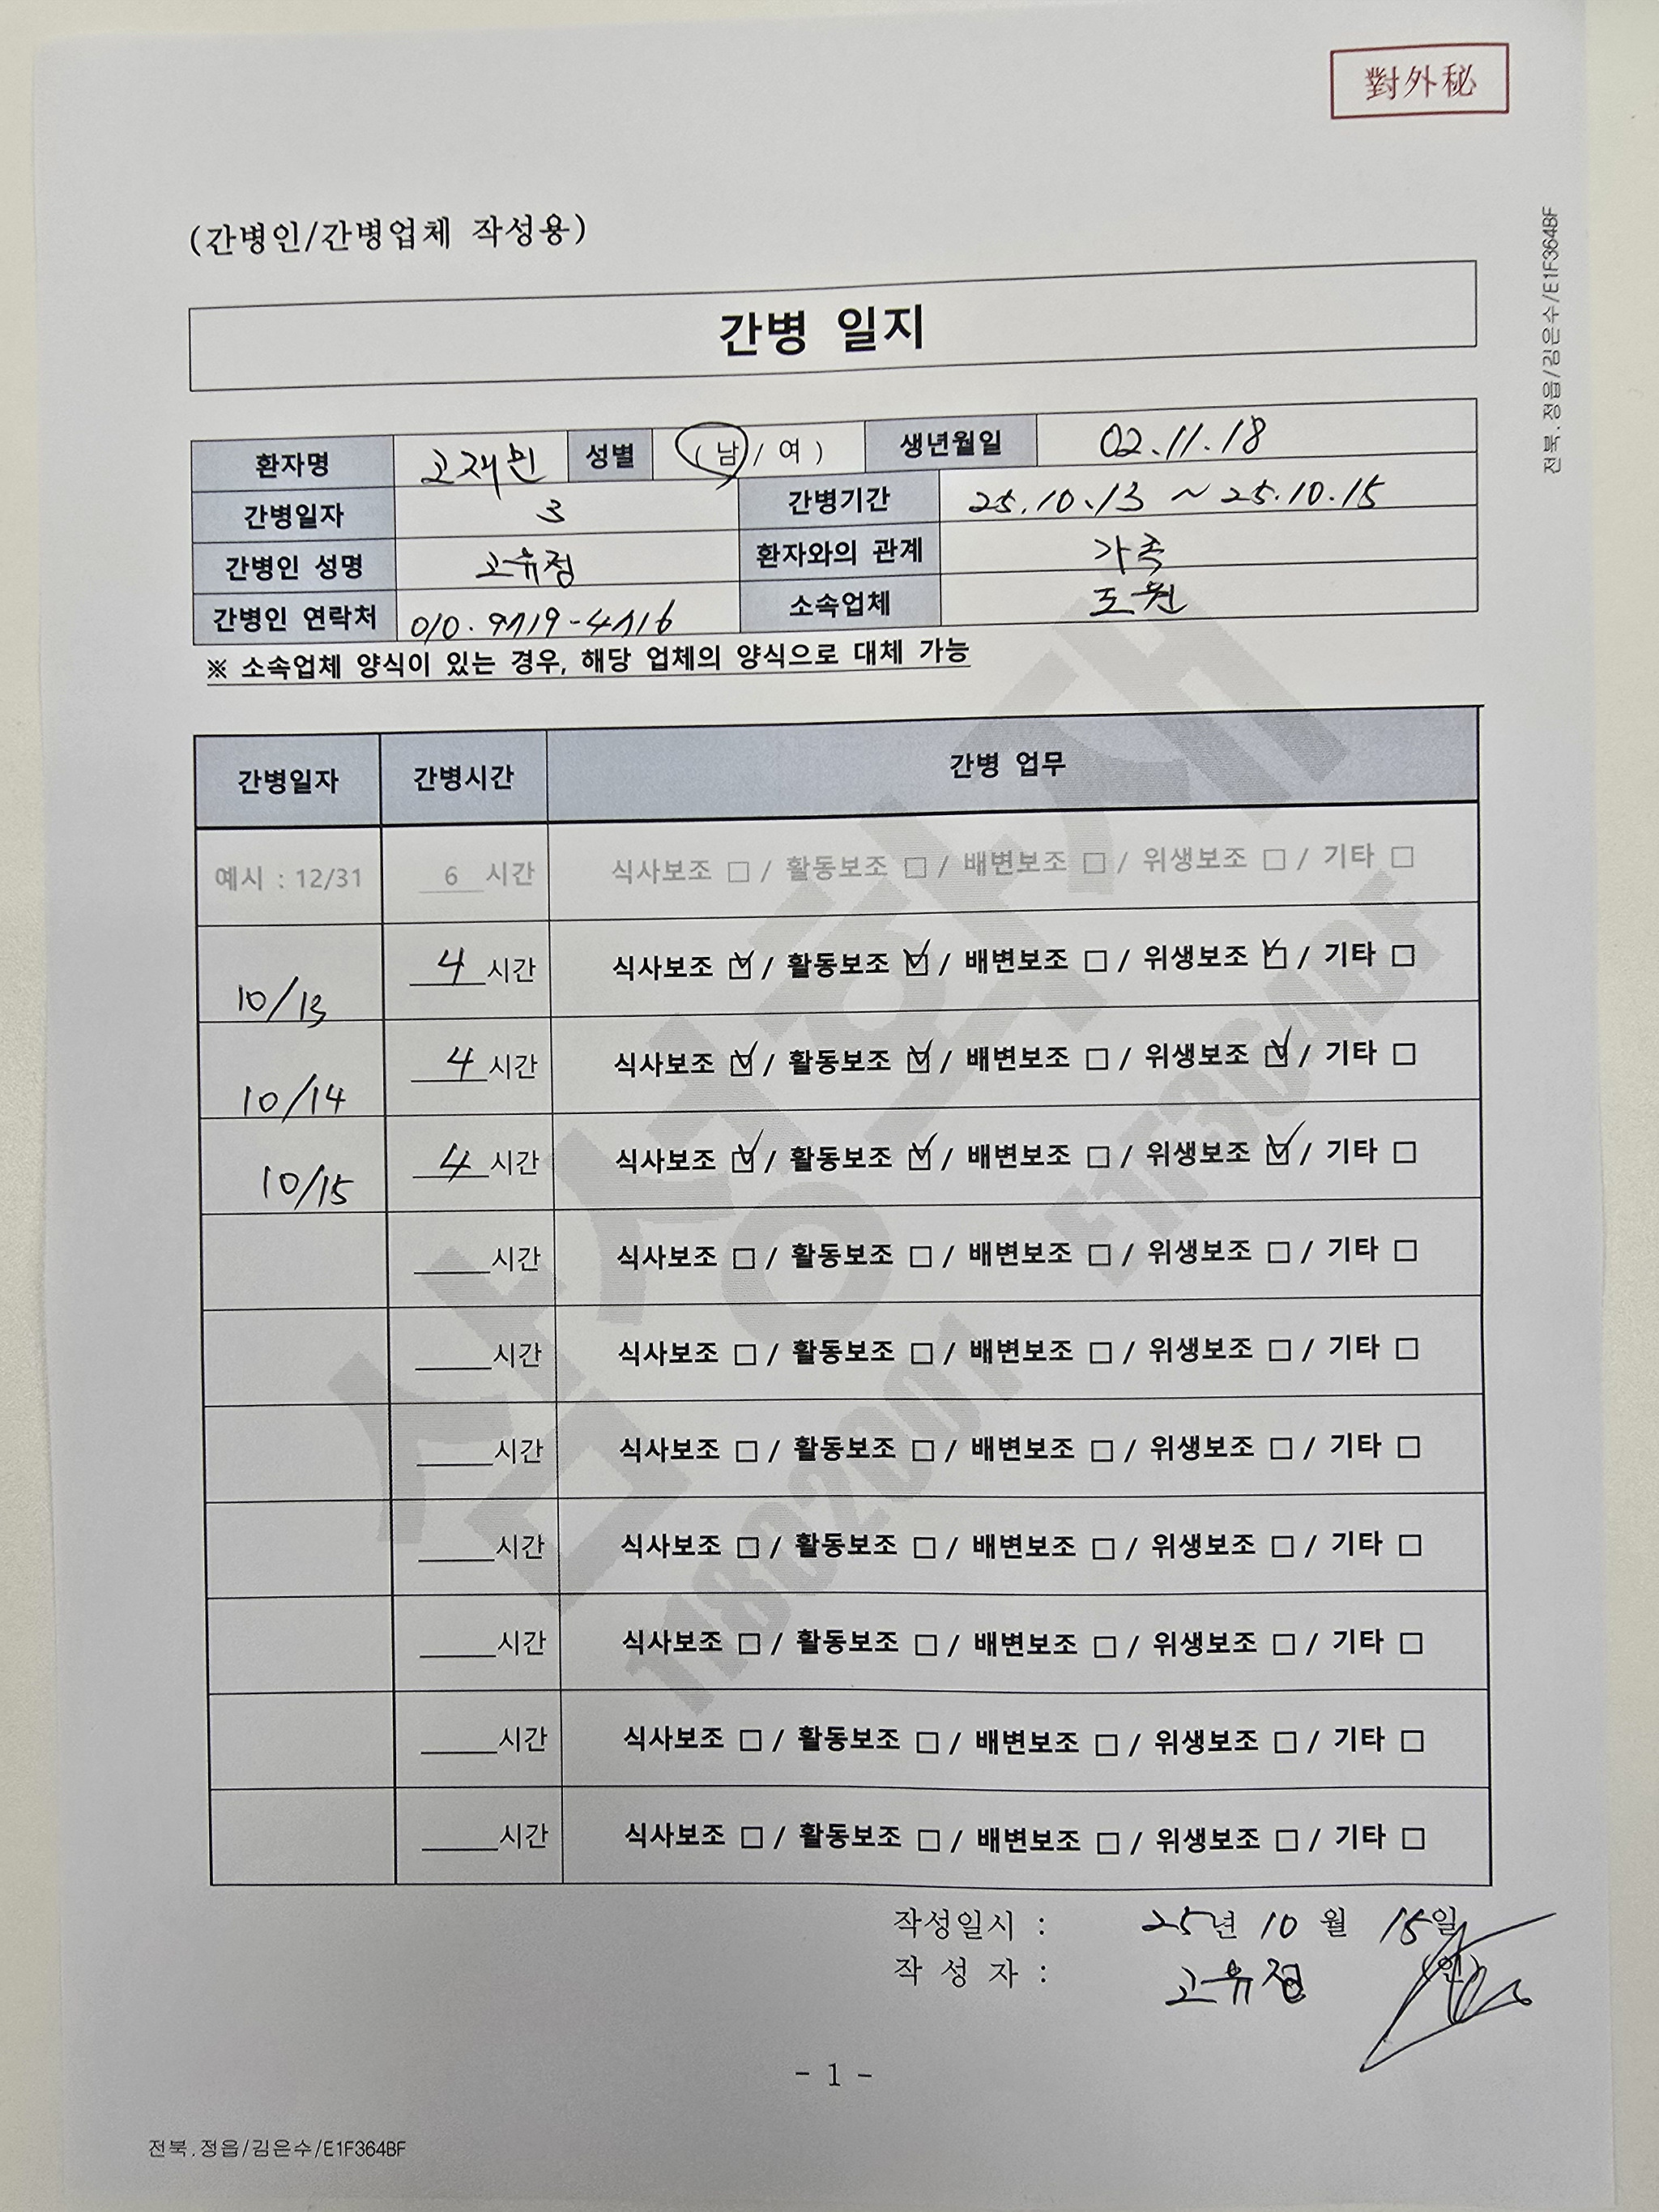 對外秘
전북.정읍/김은수/E1F364BF
(간병인/간병업체 작성용)
간병 일지
환자명 고재민 성별 (남/여) 생년월일 02.11.18
간병일자 3 간병기간 25.10.13 ~ 25.10.15
간병인 성명 고유정 환자와의 관계 가족
간병인 연락처 소속업체 도원
※ 소속업체 양식이 있는 경우, 해당 업체의 양식으로 대체 가능
간병일자 간병시간 간병 업무
예시 : 12/31 6 시간 식사보조 □ / 활동보조 □ / 배변보조 □ / 위생보조 □ / 기타 □
10/13 4 시간 식사보조 ☑ / 활동보조 ☑ / 배변보조 □ / 위생보조 ☑ / 기타 □
10/14 4 시간 식사보조 ☑ / 활동보조 ☑ / 배변보조 □ / 위생보조 ☑ / 기타 □
10/15 4 시간 식사보조 ☑ / 활동보조 ☑ / 배변보조 □ / 위생보조 ☑ / 기타 □
시간 식사보조 □ / 활동보조 □ / 배변보조 □ / 위생보조 □ / 기타 □
시간 식사보조 □ / 활동보조 □ / 배변보조 □ / 위생보조 □ / 기타 □
시간 식사보조 □ / 활동보조 □ / 배변보조 □ / 위생보조 □ / 기타 □
시간 식사보조 □ / 활동보조 □ / 배변보조 □ / 위생보조 □ / 기타 □
시간 식사보조 □ / 활동보조 □ / 배변보조 □ / 위생보조 □ / 기타 □
시간 식사보조 □ / 활동보조 □ / 배변보조 □ / 위생보조 □ / 기타 □
시간 식사보조 □ / 활동보조 □ / 배변보조 □ / 위생보조 □ / 기타 □
삼성화재
11802001 E1F364BF
작성일시 : 25년 10월 15일
작 성 자 : 고유정 (인)
- 1 -
전북.정읍/김은수/E1F364BF